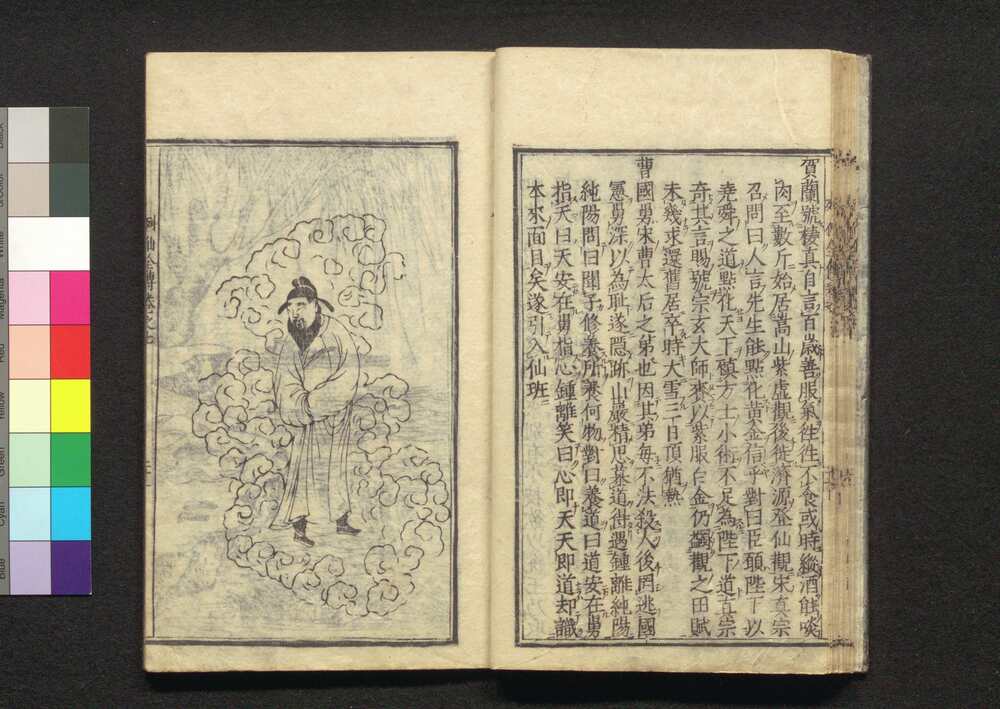 賀蘭號棲真自言百歳善服氣徃徃不食或時縱酒能啖
肉至數斤始居嵩山紫虛觀後徙濟源登仙觀宋真宗
召問曰人言先生能點化黄金信乎對曰臣願陛下以
堯舜之道點化天下方士小術不足為陛下道真宗
奇其言賜號宗玄大師賚以紫服白金仍蠲觀之田賦
未幾求還舊居卒時大雪三日頂猶熱
曹國舅宋曹太后之弟也因其弟毎不法殺人後罔逃國
憲舅深以為耻遂隠跡山巖精思慕道得遇鍾離純陽
純陽問曰聞子修養所養何物對曰養道曰道安在舅
指天曰天安在舅指心鍾離笑曰心即天天即道却識
本來面目矣遂引入仙班
列仙全傳卷之七